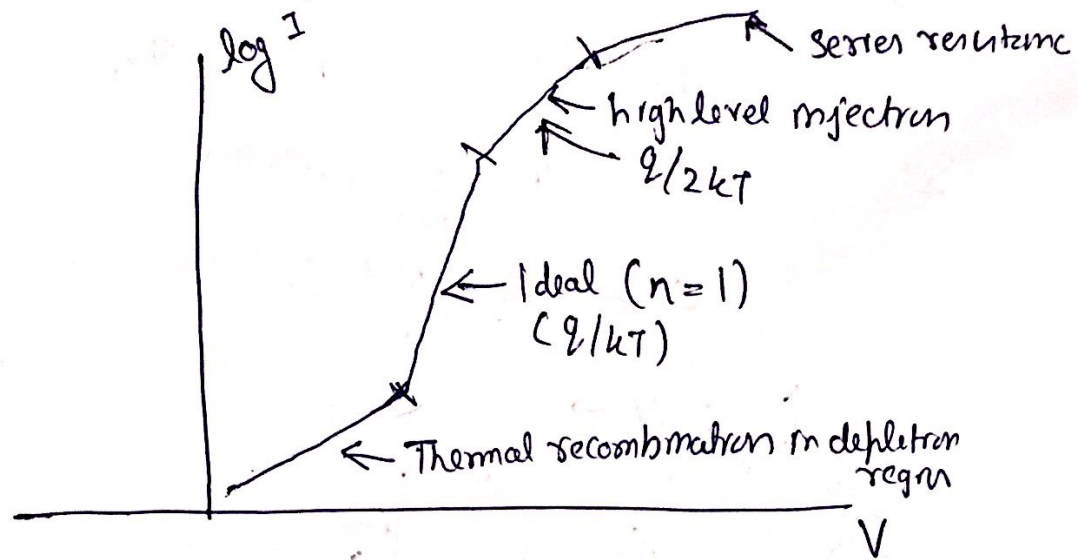 log I
series resistanc
high level injection
q/2kT
Ideal (n = 1)
(q/kT)
Thermal recombination in depletion
region
V